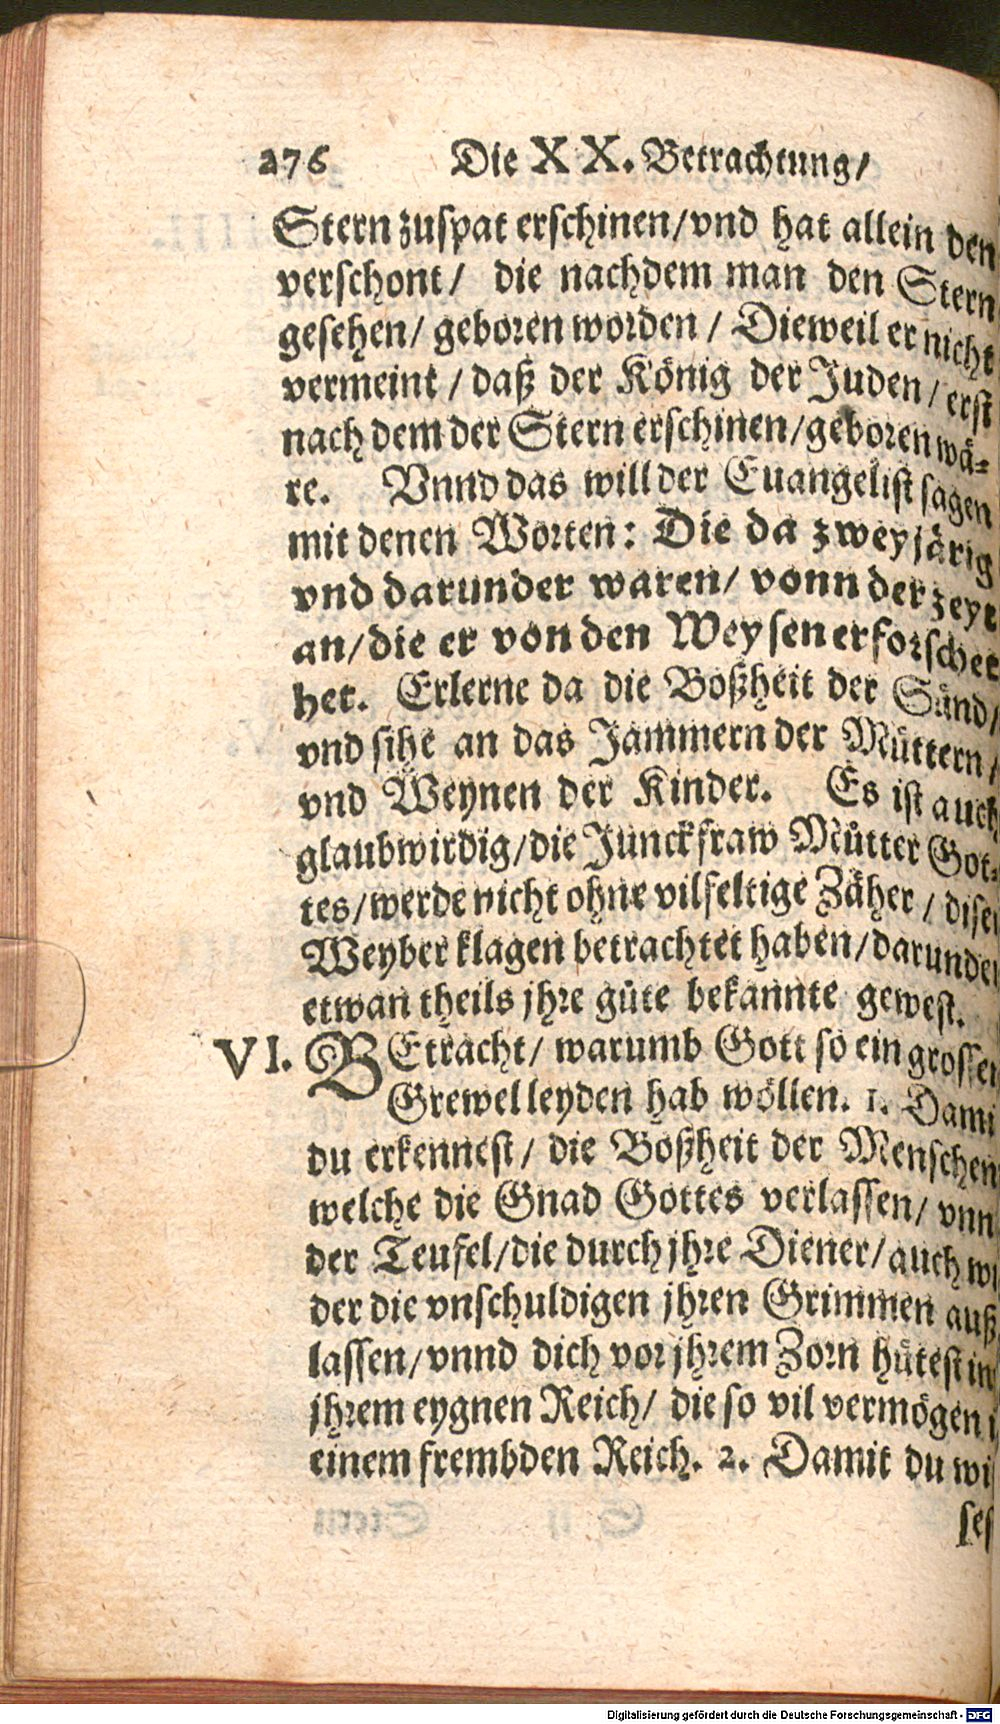 276 Die XX. Betrachtung/
Stern zuspat erschinen/vnd hat allein den
verschont/ die nachdem man den Stern
gesehen/ geboren worden / Dieweil er nicht
vermeint / daß der König der Juden / erst
nach dem der Stern erschinen/geboren wä-
re. Vnnd das will der Euangelist sagen
mit denen Worten: Die da zweyjärig
vnd darunder waren/ vonn der zeyt
an/die er von den Weysen erforschet
het. Erlerne da die Boßheit der Sünd/
vnd sihe an das Jammern der Müttern/
vnd Weynen der Kinder. Es ist auch
glaubwirdig/die Junckfraw Mütter Got-
tes/werde nicht ohne vilfeltige Zäher / diser
Weyber klagen betrachtet haben/darunder
etwan theils jhre güte bekannte gewest.
VI. BEtracht/ warumb Gott so ein grossen
Grewel leyden hab wöllen. 1. Dami
du erkennest/ die Boßheit der Menschen
welche die Gnad Gottes verlassen/ vnn
der Teufel/die durch jhre Diener/auch wi
der die vnschuldigen jhren Grimmen auß
lassen/vnnd dich vor jhrem Zorn hütest in
jhrem eygnen Reich/ die so vil vermögen i
einem frembden Reich. 2. Damit du wi
ses
Digitalisierung gefördert durch die Deutsche Forschungsgemeinschaft - DFG